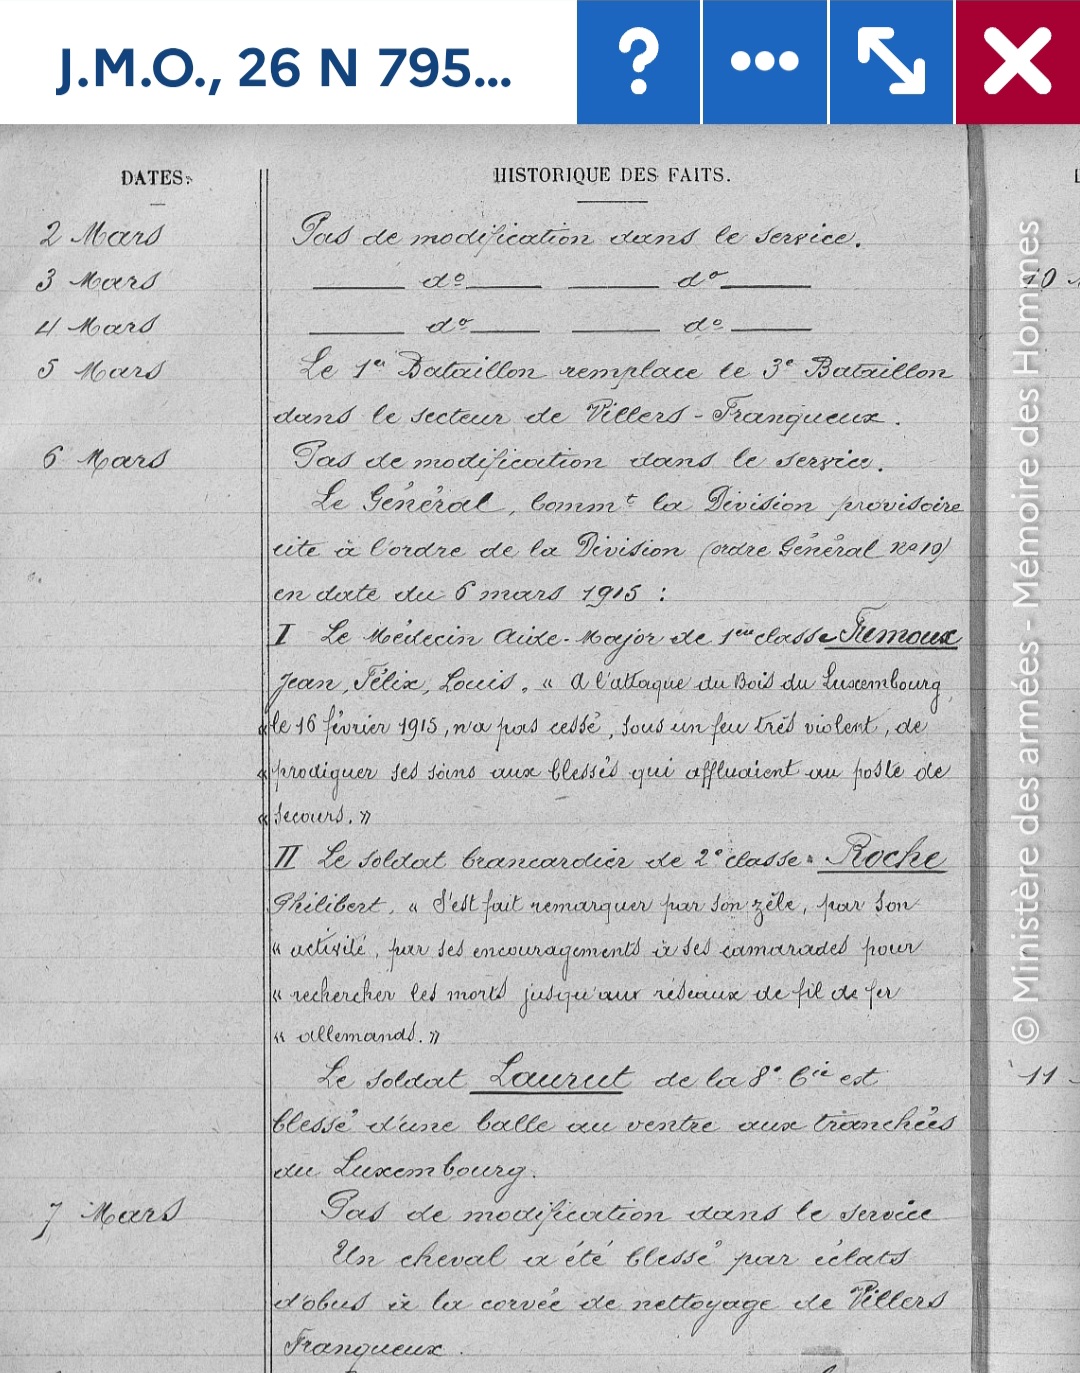 J.M.O., 26 N 795...
DATES.
HISTORIQUE DES FAITS.
2 Mars Pas de modification dans le service.
3 Mars do do
4 Mars do do
5 Mars Le 1er Bataillon remplace le 3e Bataillon
dans le secteur de Villers-Franqueux.
6 Mars Pas de modification dans le service.
Le Général, Commt la Division provisoire
cite à l'ordre de la Division (ordre Général no 19)
en date du 6 mars 1915 :
I Le Médecin Aide-Major de 1ère classe
Jean, Félix, Louis. « A l'attaque du Bois du Luxembourg,
« le 16 février 1915, n'a pas cessé, sous un feu très violent, de
« prodiguer ses soins aux blessés qui affluaient au poste de
« secours. »
II Le soldat brancardier de 2e classe Roche
Philibert. « S'est fait remarquer par son zèle, par son
« activité, par ses encouragements à ses camarades pour
« rechercher les morts jusqu'aux réseaux de fil de fer
« allemands. »
Le soldat Laurut de la 8e Cie est
blessé d'une balle au ventre aux tranchées
du Luxembourg.
7 Mars Pas de modification dans le service
Un cheval a été blessé par éclats
d'obus à la corvée de nettoyage de Villers
Franqueux.
10
11
© Ministère des armées - Mémoire des Hommes